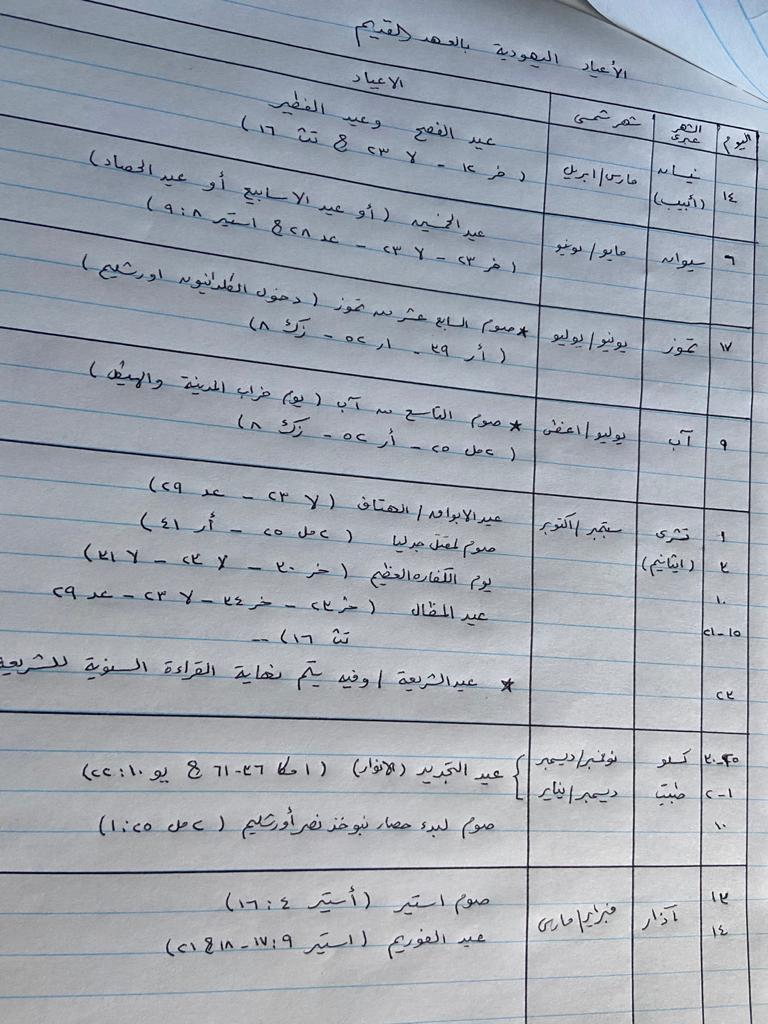 الأعياد اليهودية بالعهد القديم
اليوم | الشهر عبرى | شهر شمسى | الاعياد
١٤ | نيسان (أبيب) | مارس/ابريل | عيد الفصح وعيد الفطير
( خر ١٢ - لا ٢٣ & تث ١٦ )
٦ | سيوان | مايو/يونيو | عيد الخمسين ( أو عيد الاسابيع أو عيد الحصاد )
( خر ٢٣ - لا ٢٣ - عد ٢٨ & استير ٨ : ٩ )
١٧ | تموز | يونيو/يوليو | * صوم السابع عشر من تموز ( دخول الكلدانيون اورشليم )
( أر ٣٩ - ار ٥٢ - زك ٨ )
٩ | آب | يوليو/اغسطس | * صوم التاسع من آب ( يوم خراب المدينة والهيكل )
( ٢مل ٢٥ - أر ٥٢ - زك ٨ )
١ | تشرى | سبتمبر/اكتوبر | عيد الابواق/الهتاف ( لا ٢٣ - عد ٢٩ )
٣ | (ايثانيم) | صوم لمقتل جدليا ( ٢مل ٢٥ - أر ٤١ )
١٠ | يوم الكفاره العظيم ( خر ٣٠ - لا ٢٣ - لا ٣١ )
١٥-٢١ | عيد المظال ( خر ٢٣ - خر ٣٤ - لا ٢٣ - عد ٢٩
تث ١٦ ) --
٢٣ | * عيد الشريعة / وفيه يتم نهاية القراءة السنوية للشريعة
٢٥-٣٠ | كسلو | نوفمبر/ديسمبر | عيد التجديد (الانوار) ( ١مكا ٣٦-٦١ & يو ١٠ : ٢٢ )
١-٢ | طبيت | ديسمبر/يناير
١٠ | صوم لبدء حصار نبوخذ نصر أورشليم ( ٢مل ٢٥ : ١ )
١٣ | آذار | فبراير/مارس | صوم استير ( أستير ٤ : ١٦ )
١٤ | عيد الفوريم ( استير ٩ : ١٧ - ١٨ & ٢١ )